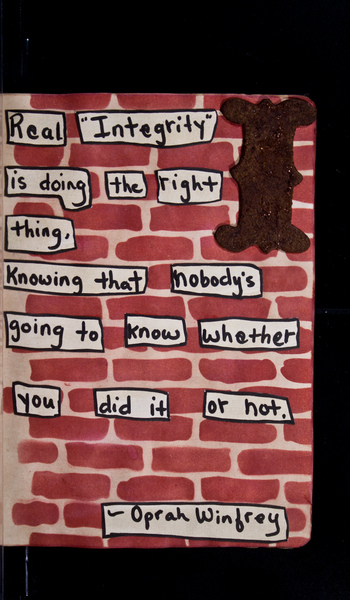 Real "Integrity"
is doing the right
thing,
Knowing that nobody's
going to know whether
you did it or not.
- Oprah Winfrey